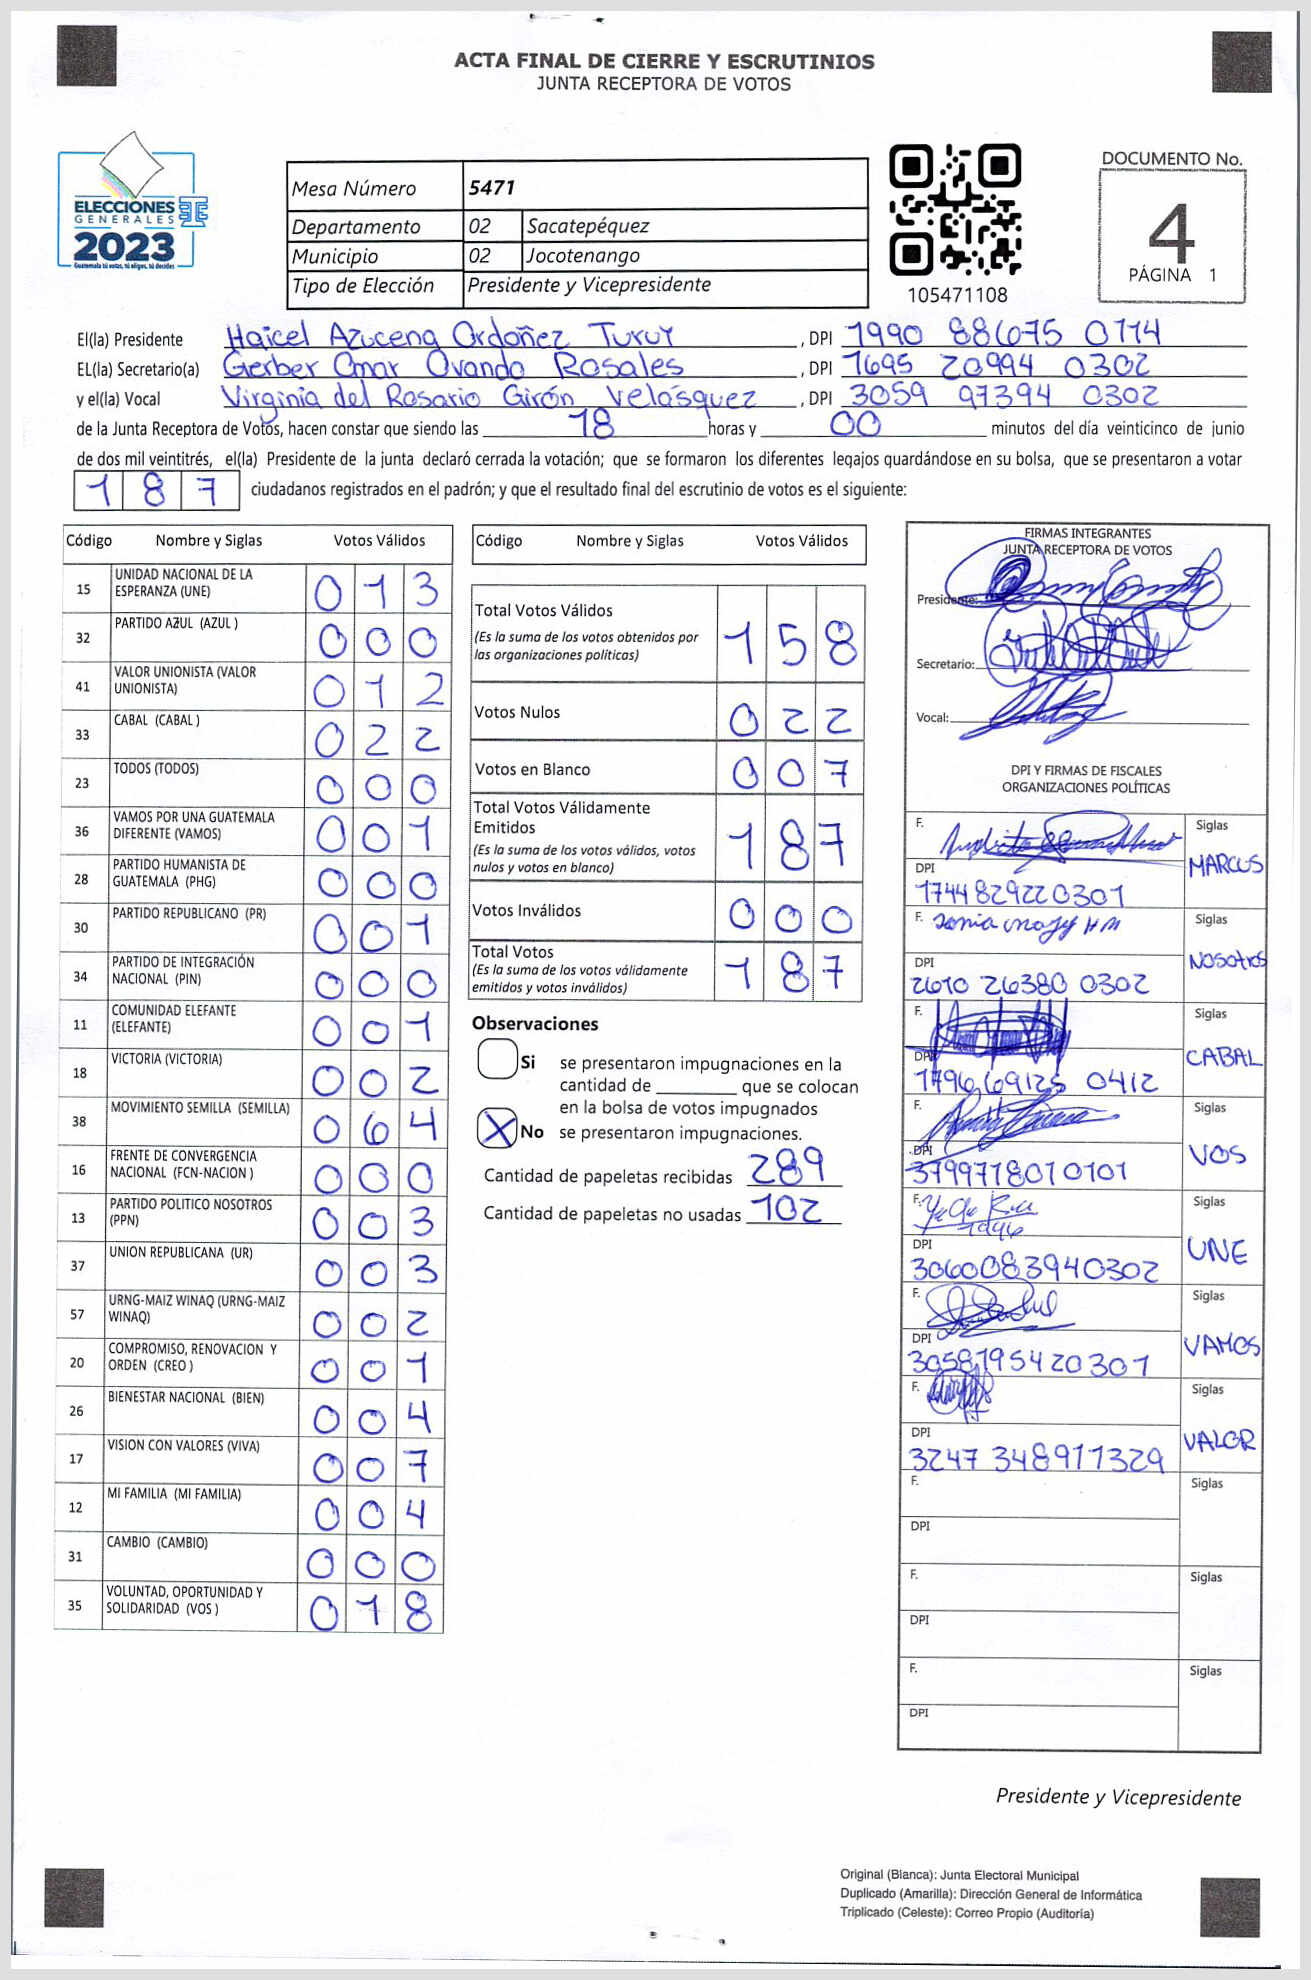 ACTA FINAL DE CIERRE Y ESCRUTINIOS
JUNTA RECEPTORA DE VOTOS
ELECCIONES
GENERALES
2023
Guatemala tú votas, tú eliges, tú decides
Mesa Número 5471
Departamento 02 Sacatepéquez
Municipio 02 Jocotenango
Tipo de Elección Presidente y Vicepresidente
105471108
DOCUMENTO No.
4
PÁGINA 1
El(la) Presidente Haicel Azucena Ordoñez Turuy, DPI 1990 88675 0114
EL(la) Secretario(a) Gerber Omar Ovando Rosales, DPI 1695 20994 0302
y el(la) Vocal Virginia del Rosario Girón Velásquez, DPI 3059 97394 0302
de la Junta Receptora de Votos, hacen constar que siendo las 18 horas y 00 minutos del día veinticinco de junio
de dos mil veintitrés, el(la) Presidente de la junta declaró cerrada la votación; que se formaron los diferentes legajos guardándose en su bolsa, que se presentaron a votar
187 ciudadanos registrados en el padrón; y que el resultado final del escrutinio de votos es el siguiente:
Código Nombre y Siglas Votos Válidos
15 UNIDAD NACIONAL DE LA ESPERANZA (UNE) 013
32 PARTIDO AZUL (AZUL ) 000
41 VALOR UNIONISTA (VALOR UNIONISTA) 012
33 CABAL (CABAL ) 022
23 TODOS (TODOS) 000
36 VAMOS POR UNA GUATEMALA DIFERENTE (VAMOS) 001
28 PARTIDO HUMANISTA DE GUATEMALA (PHG) 000
30 PARTIDO REPUBLICANO (PR) 001
34 PARTIDO DE INTEGRACIÓN NACIONAL (PIN) 000
11 COMUNIDAD ELEFANTE (ELEFANTE) 001
18 VICTORIA (VICTORIA) 002
38 MOVIMIENTO SEMILLA (SEMILLA) 064
16 FRENTE DE CONVERGENCIA NACIONAL (FCN-NACION ) 000
13 PARTIDO POLITICO NOSOTROS (PPN) 003
37 UNION REPUBLICANA (UR) 003
57 URNG-MAIZ WINAQ (URNG-MAIZ WINAQ) 002
20 COMPROMISO, RENOVACION Y ORDEN (CREO ) 001
26 BIENESTAR NACIONAL (BIEN) 004
17 VISION CON VALORES (VIVA) 007
12 MI FAMILIA (MI FAMILIA) 004
31 CAMBIO (CAMBIO) 000
35 VOLUNTAD, OPORTUNIDAD Y SOLIDARIDAD (VOS ) 018
Código Nombre y Siglas Votos Válidos
Total Votos Válidos 158
(Es la suma de los votos obtenidos por
las organizaciones políticas)
Votos Nulos 022
Votos en Blanco 007
Total Votos Válidamente
Emitidos 187
(Es la suma de los votos válidos, votos
nulos y votos en blanco)
Votos Inválidos 000
Total Votos 187
(Es la suma de los votos válidamente
emitidos y votos inválidos)
Observaciones
Si se presentaron impugnaciones en la
cantidad de ________ que se colocan
en la bolsa de votos impugnados
X No se presentaron impugnaciones.
Cantidad de papeletas recibidas 289
Cantidad de papeletas no usadas 102
FIRMAS INTEGRANTES
JUNTA RECEPTORA DE VOTOS
Presidente:
Secretario:
Vocal:
DPI Y FIRMAS DE FISCALES
ORGANIZACIONES POLÍTICAS
F. Siglas
DPI MARCUS
1744829220301
F. Siglas
DPI NOSOTROS
2610 26380 0302
F. Siglas
DPI CABAL
1796 69125 0412
F. Siglas
DPI VOS
3799718010101
F. Siglas
DPI UNE
3060083940302
F. Siglas
DPI VAMOS
3058195420301
F. Siglas
DPI VALOR
3247 348911329
F. Siglas
DPI
F. Siglas
DPI
F. Siglas
DPI
Presidente y Vicepresidente
Original (Blanca): Junta Electoral Municipal
Duplicado (Amarilla): Dirección General de Informática
Triplicado (Celeste): Correo Propio (Auditoría)